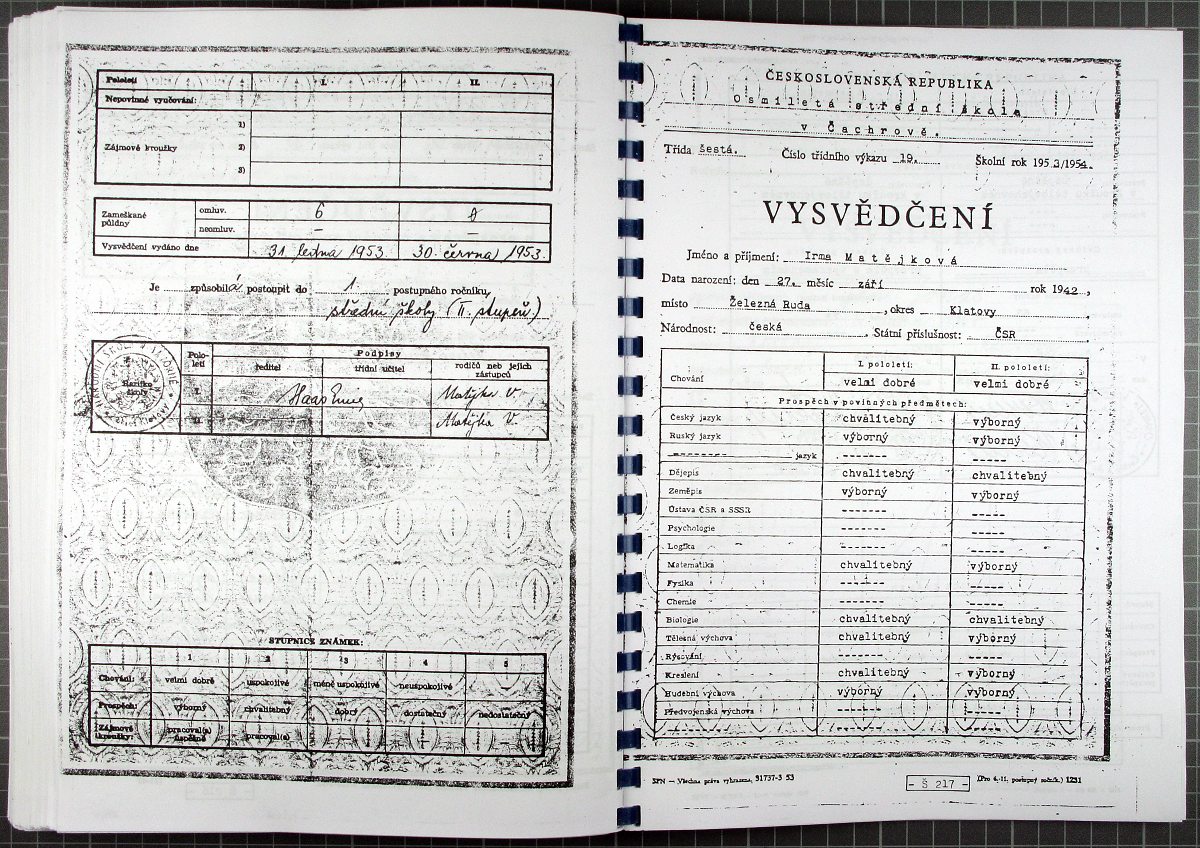 Pololetí I. II.
Nepovinné vyučování:
1)
Zájmové kroužky 2)
3)
Zameškané půldny omluv. 6 0
neomluv. — —
Vysvědčení vydáno dne 31. ledna 1953. 30. června 1953.
Je způsobilá postoupit do 1. postupného ročníku,
střední školy (II. stupeň)
Pololetí Podpisy
ředitel třídní učitel rodičů neb jejich zástupců
Razítko školy I. Haas Matějka V.
II. Matějka V.
STUPNICE ZNÁMEK:
1 2 3 4 5
Chování: velmi dobré uspokojivé méně uspokojivé neuspokojivé
Prospěch: výborný chvalitebný dobrý dostatečný nedostatečný
Zájmové kroužky: pracoval(a) úspěšně pracoval(a)
ČESKOSLOVENSKÁ REPUBLIKA
Osmiletá střední škola
v Čachrově.
Třída šestá. Číslo třídního výkazu 19. Školní rok 1953/1954.
VYSVĚDČENÍ
Jméno a příjmení: Irma Matějková
Data narození: den 27. měsíc září rok 1942,
místo Železná Ruda, okres Klatovy
Národnost: česká Státní příslušnost: ČSR
Chování I. pololetí: II. pololetí:
velmi dobré velmi dobré
Prospěch v povinných předmětech:
Český jazyk chvalitebný výborný
Ruský jazyk výborný výborný
-------- jazyk ------- -----
Dějepis chvalitebný chvalitebný
Zeměpis výborný výborný
Ústava ČSR a SSSR ------- -----
Psychologie ------- -----
Logika ------- -----
Matematika chvalitebný výborný
Fysika ------- -----
Chemie ------- -----
Biologie chvalitebný chvalitebný
Tělesná výchova chvalitebný výborný
Rýsování ------- -----
Kreslení chvalitebný výborný
Hudební výchova výborný výborný
Předvojenská výchova ------- -----
SPN — Všechna práva vyhrazena. 31737-3 53 - Š 217 - (Pro 4.-11. postupný ročník.) 1231